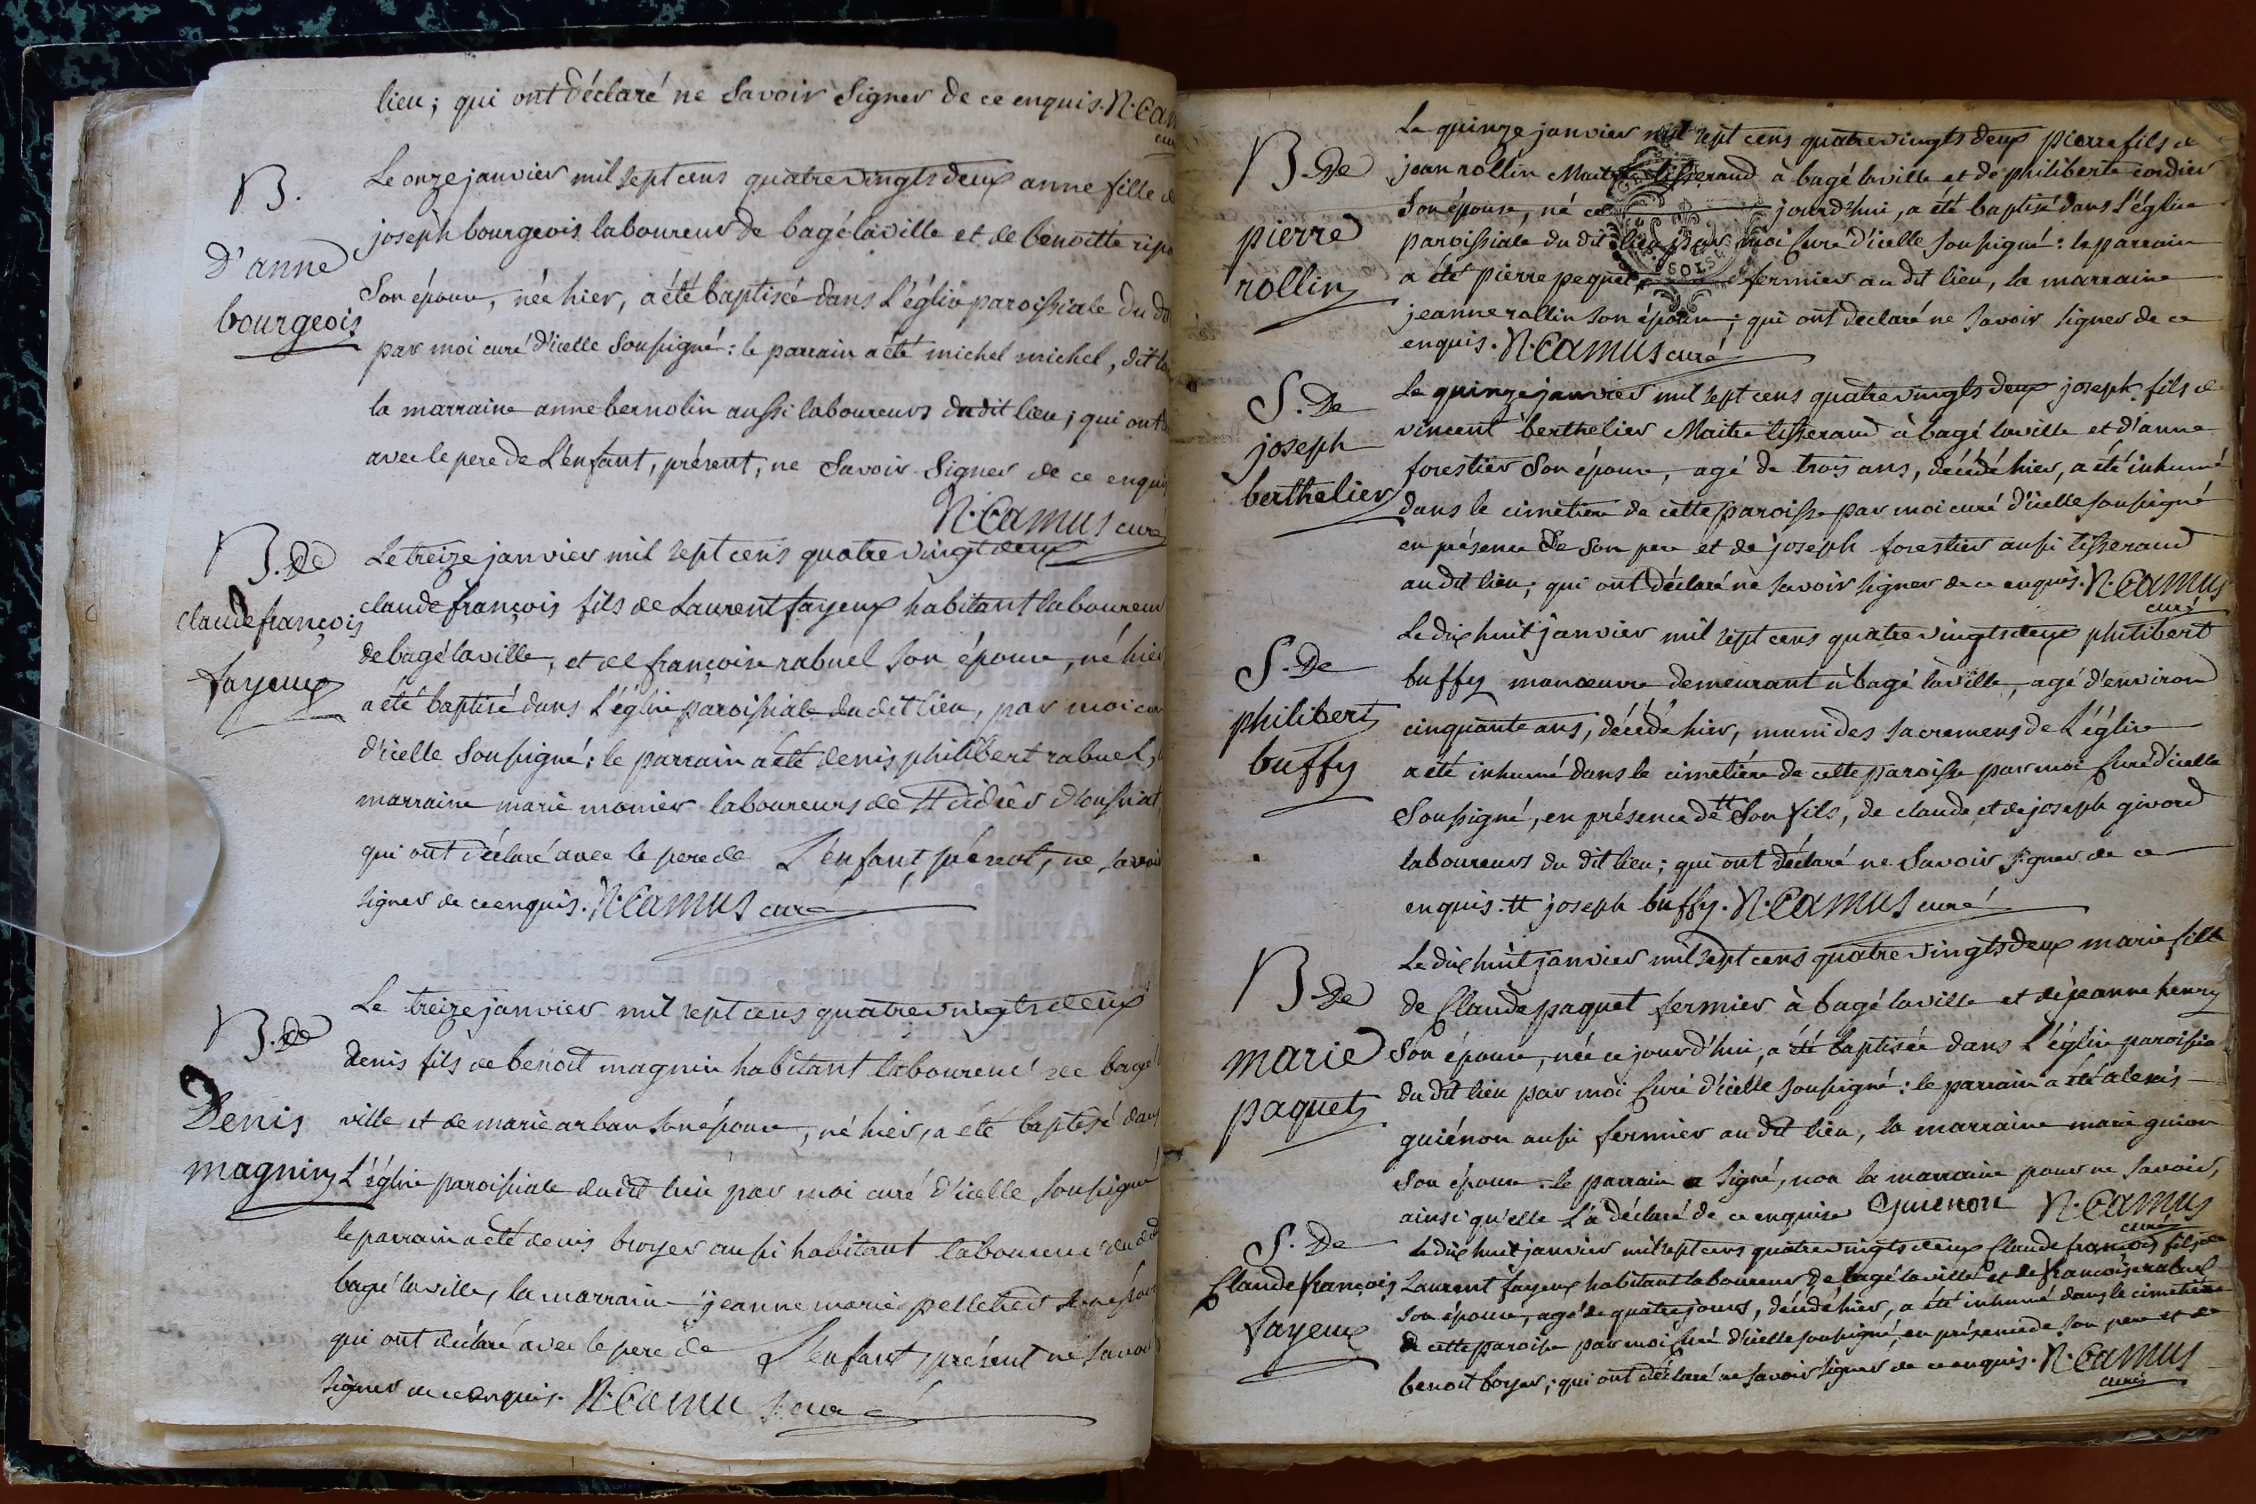 lieu; qui ont déclaré ne Savoir Signer de ce enquis. N. Cam
cu
B.
D'anne
bourgeois
Le onze janvier mil sept cens quatre vingts deux anne fille d
joseph bourgeois laboureur de bagé laville et de benoitte
Son épouse, née hier, a été baptisée dans L'église paroissiale du d
par moi curé d'icelle Soussigné: le parrain a été michel michel, dit
la marraine anne bernolin aussi laboureurs du dit lieu; qui ont
avec le pere de L'enfant, présent, ne Savoir Signer de ce enquis
N. Camus curé
B. de
claude françois
fayeux
Le treize janvier mil sept cens quatre vingt deux
claude françois fils de Laurent fayeux habitant laboureur
de bagé laville, et de françoise rabuel son épouse, né hier
a été baptisé dans L'église paroissiale du dit lieu, par moi cur
d'icelle Soussigné; le parrain a été denis philibert rabuel,
marraine marie monier laboureurs de St didier d'oussiat
qui ont déclaré avec le pere de L'enfant, présent, ne savoir
signer de ce enquis. N. Camus curé
B. de
Denis
magnin
Le treize janvier mil sept cens quatre vingts deux
denis fils de benoit magnin habitant laboureur de bagé l
ville et de marie arban son épouse, né hier, a été baptisé dans
L'église paroissiale du dit lieu par moi curé d'icelle soussigné
le parrain a été denis broyer aussi habitant laboureur du dit
bagé laville, la marraine jeanne marie pelletier son épouse
qui ont déclaré avec le pere de L'enfant, présent ne savoir
signer de ce enquis. N. Camus curé
B. De
pierre
rollin
Le quinze janvier mil sept cens quatre vingts deux pierre fils de
jean rollin Maitre tisserand à bagé laville et de philiberte cordier
Son épouse, né ce jourd'hui, a été baptisé dans L'église
paroissiale du dit lieu par moi Curé d'icelle soussigné: le parrain
a été pierre pequet, fermier au dit lieu, la marraine
jeanne rollin son épouse; qui ont déclaré ne savoir signer de ce
enquis. N. Camus curé
S. De
joseph
berthelier
Le quinze janvier mil sept cens quatre vingts deux joseph fils de
vincent berthelier Maitre tisserand à bagé laville et d'anne
forestier Son épouse, agé de trois ans, décédé hier, a été inhumé
dans le cimetiere de cette paroisse par moi curé d'icelle soussigné
en présence de Son pere et de joseph forestier aussi tisserand
au dit lieu; qui ont déclaré ne savoir signer de ce enquis. N. Camus
curé
S. De
philibert
buffy
Le dix huit janvier mil sept cens quatre vingts deux philibert
buffy manœuvre demeurant à bagé laville, agé d'environ
cinquante ans, décédé hier, muni des sacremens de L'église
a été inhumé dans le cimetière de cette paroisse par moi Curé d'icelle
Soussigné, en présence de tt Son fils, de claude et de joseph givord
laboureurs du dit lieu; qui ont déclaré ne Savoir signer de ce
enquis. tt joseph buffy. N. Camus curé
B. De
marie
paquet
Le dix huit janvier mil sept cens quatre vingts deux marie fille
de Claude paquet fermier à bagé laville et de jeanne henry
Son épouse, née ce jourd'hui, a été baptisée dans L'église paroissia
du dit lieu par moi Curé d'icelle soussigné: le parrain a été alexis
guiénon aussi fermier au dit lieu, la marraine marie guion
Son épouse. le parrain a signé, non la marraine pour ne savoir,
ainsi qu'elle L'a déclaré de ce enquise Guienon N. Camus
curé
S. De
Claude françois
fayeux
Le dix huit janvier mil sept cens quatre vingts deux Claude françois fils de
Laurent fayeux habitant laboureur de bagé laville et de françoise rabuel
son épouse, agé de quatre jours, décédé hier, a été inhumé dans le cimetière
de cette paroisse par moi Curé d'icelle soussigné, en présence de son pere et de
benoit boyer; qui ont déclaré ne savoir signer de ce enquis. N. Camus
curé